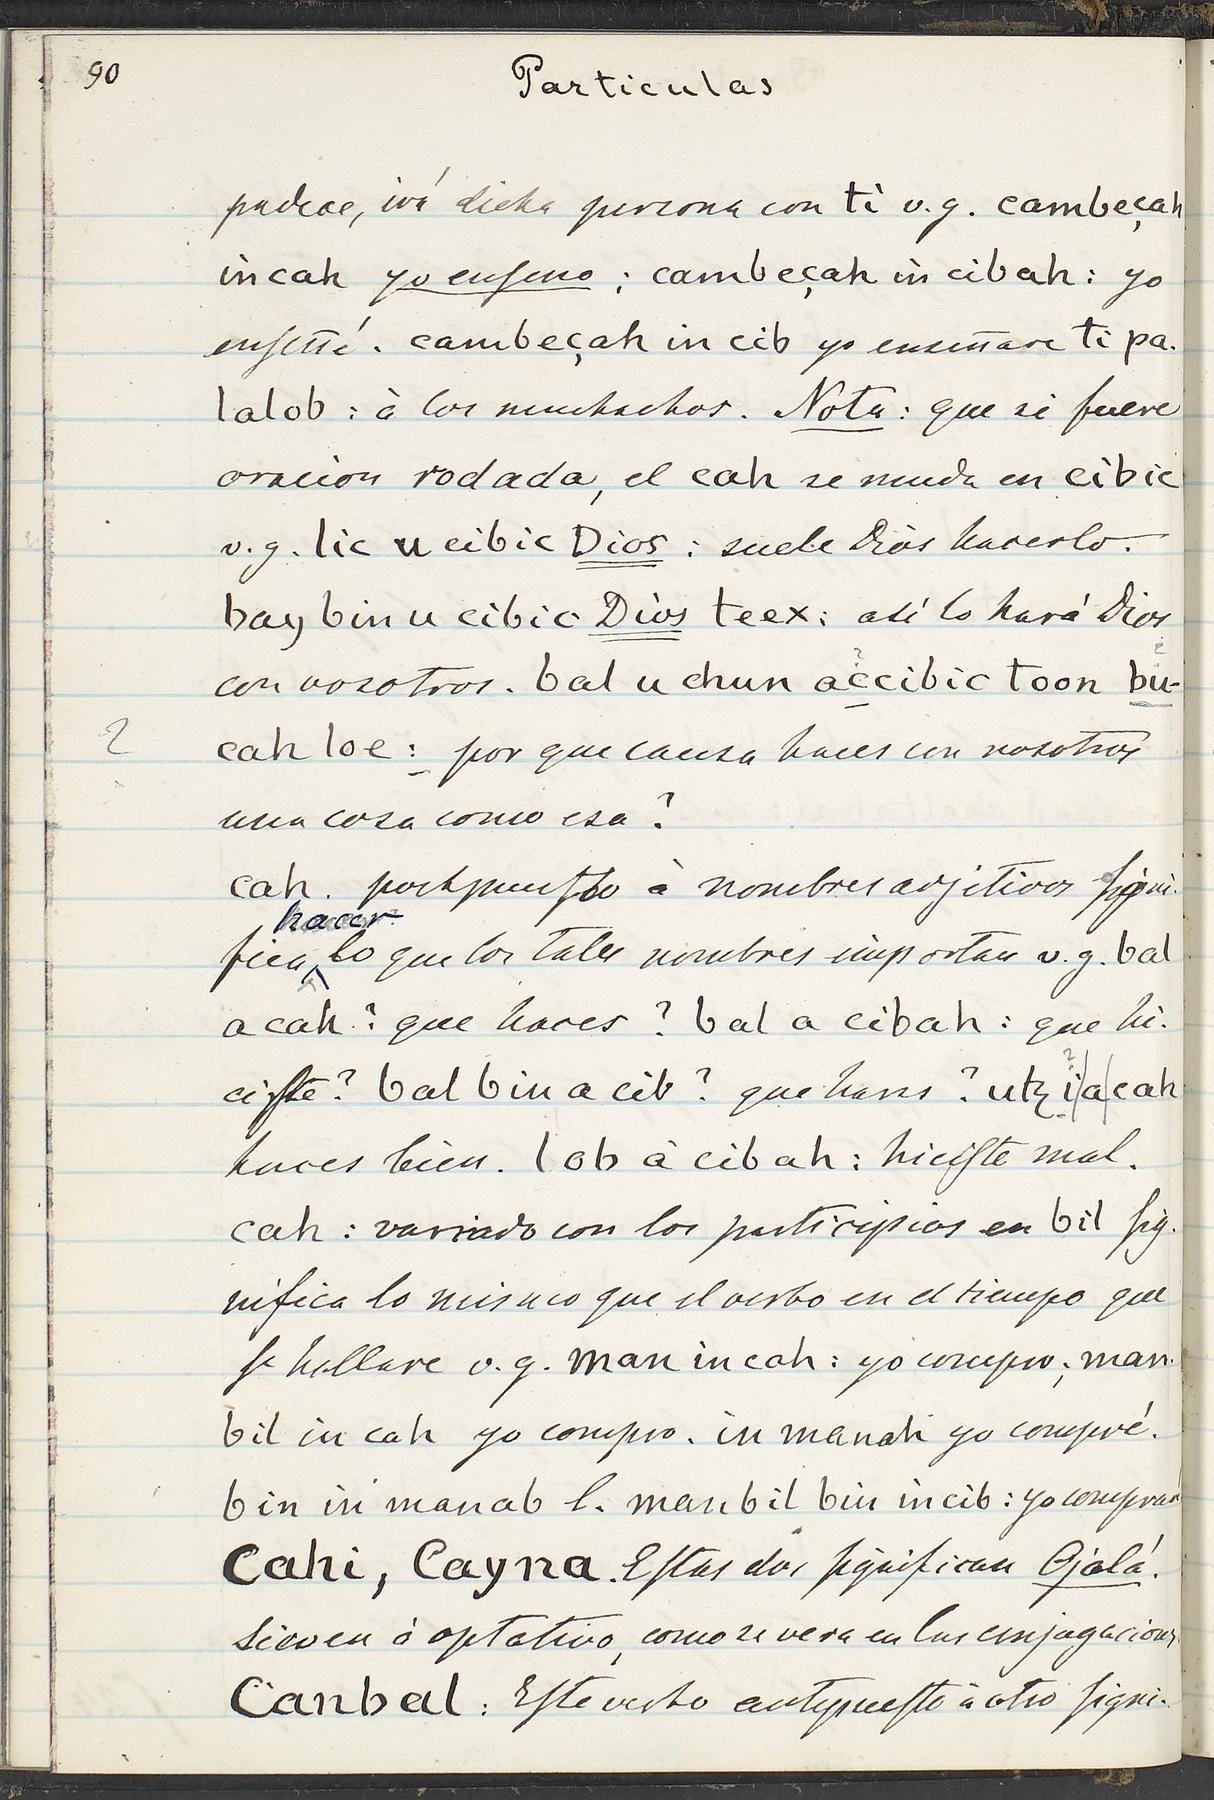 90
Particulas
padece, irá dicha persona con ti v.g. cambeçah
in cah yo enseno ; cambeçah in cibah : yo
enseñé. cambeçah in cib yo enseñare ti pa.
lalob : à los muchachos. Nota : que si fuere
oracion rodada, el cah se muda en cibic
v.g. lic u cibic Dios : suele Diòs hacerlo.
bay bin u cibic Diòs teex : así lo hará Dios
con vosotros. bal u chun a c cibic toon bu-
? cah loe : por que causa haces con nosotros
una cosa como esa ?
cah. postpuesto à nombres adjetivos signi-
hacer
fica lo que los tales nombres importan v.g. bal
a cah ? que haces ? bal a cibah : que hi-
ciste ? bal bin a cib ? que haras ? utz i a cah
haces bien. lob à cibah : hiciste mal.
cah : variado con los participios en bil sig-
nifica lo mismo que el verbo en el tiempo que
se hallare v.g. man in cah : yo compro ; man-
bil in cah yo compro. in manah yo compré.
bin in manab l. manbil bin in cib : yo comprará
Cahi, Cayna. Estas dos significan Ojalá.
Sirven à optativo, como se vera en las conjugaciones
Canbal : Este verbo antepuesto à otro signi-